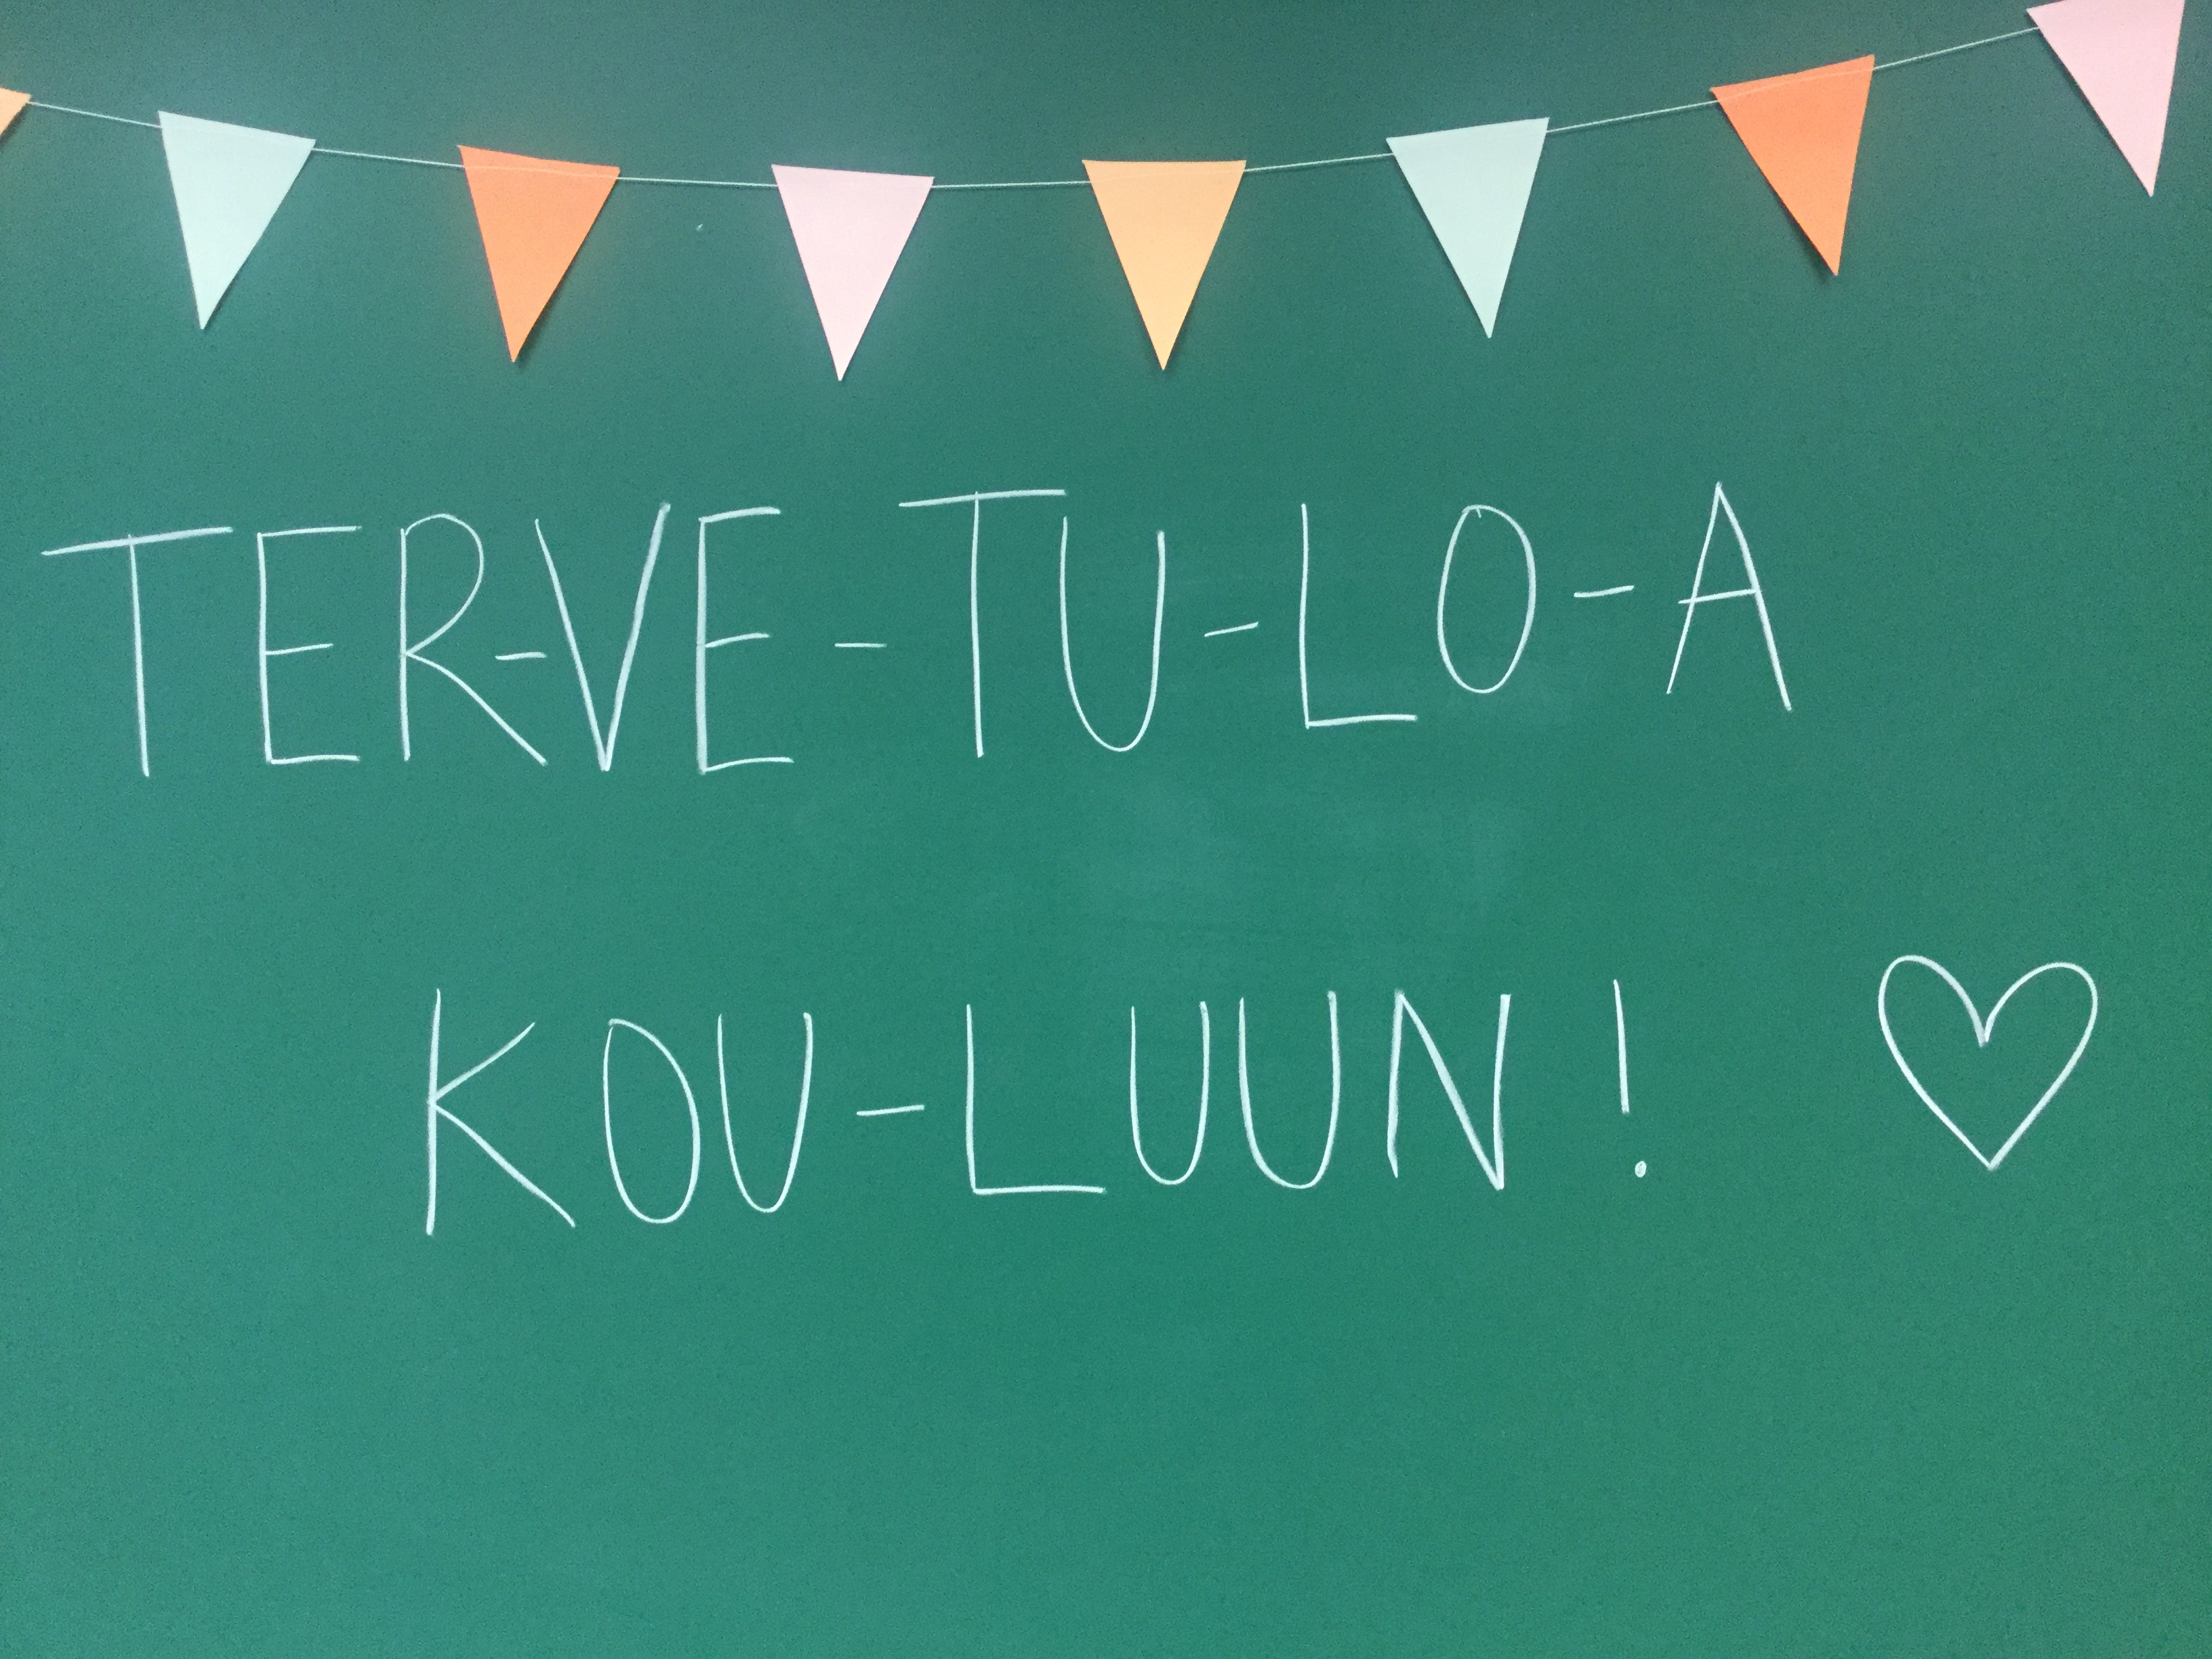 TER-VE-TU-LO-A
KOU-LUUN! ♡